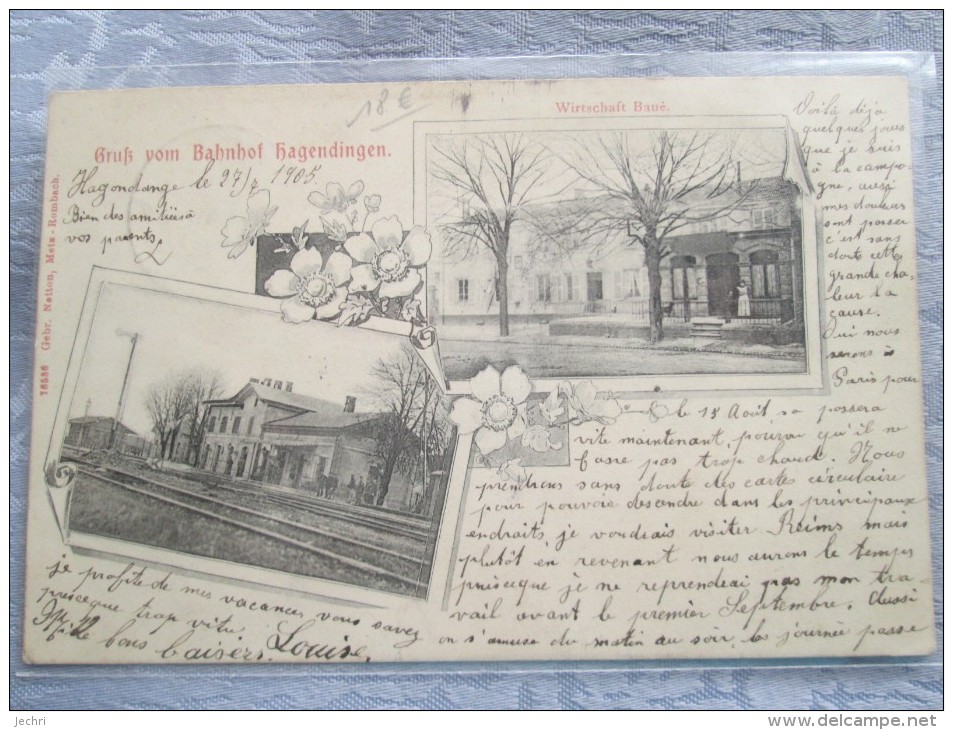 18 €
Wirtschaft Bauë.
Gruß vom Bahnhof Hagendingen.
Hagondange le 27/7 1905
Bien des amitiés à
vos parents
76536 Gebr. Natton, Metz-Rombach.
Voilà déja
quelques jours
que je suis
à la campa-
gne, aussi
mes douleurs
sont passer
c'est sans
doute cette
grande cha-
leur la
cause.
Oui nous
serons à
Paris pour
le 15 Août sa passera
vite maintenant, pourvu qu'il ne
fasse pas trop chaud. Nous
prendrons sans doute des cartes circulaire
pour pouvoir descendre dans les principaux
endroits, je voudrais visiter Reims mais
plutôt en revenant nous aurons le temps
puisque je ne reprendrai pas mon tra-
vail avant le premier Septembre. Aussi
on s'amuse du matin au soir, la journée passe
je profite de mes vacances vous savez
presque trop vite.
Mille bons baisers. Louise.
jechri
www.delcampe.net